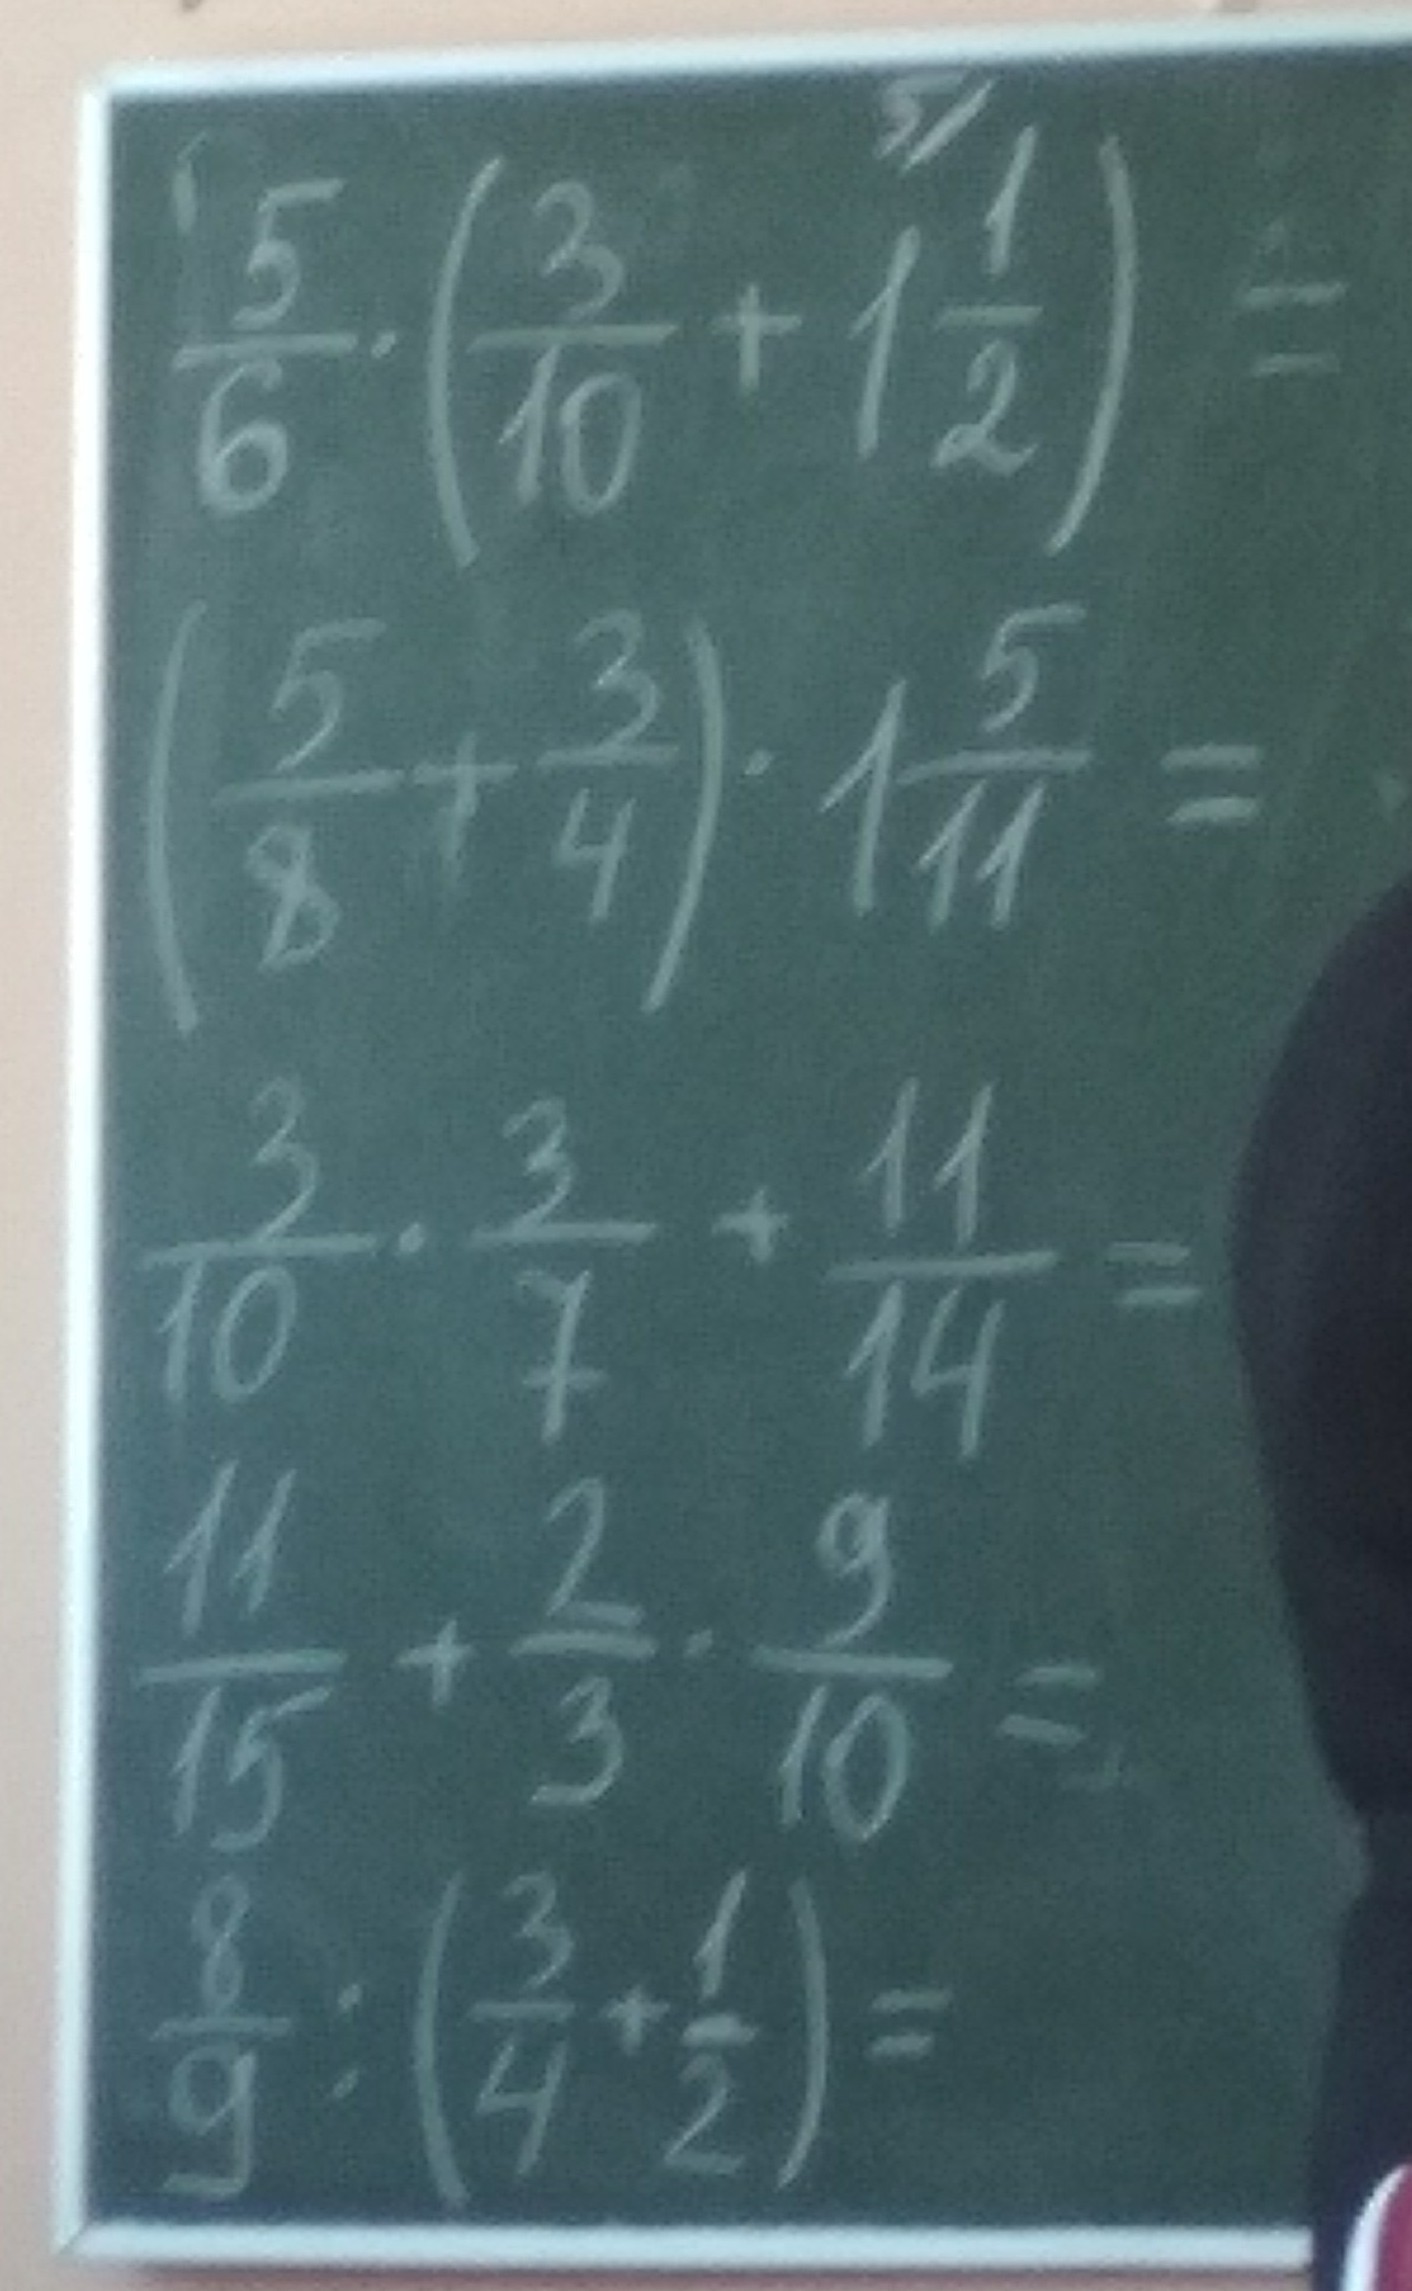 5/
5/6 · (3/10 + 1 1/2) =
(5/8 + 3/4) · 1 5/11 =
3/10 · 3/7 + 11/14 =
11/15 + 2/3 · 9/10 =
8/9 : (3/4 + 1/2) =